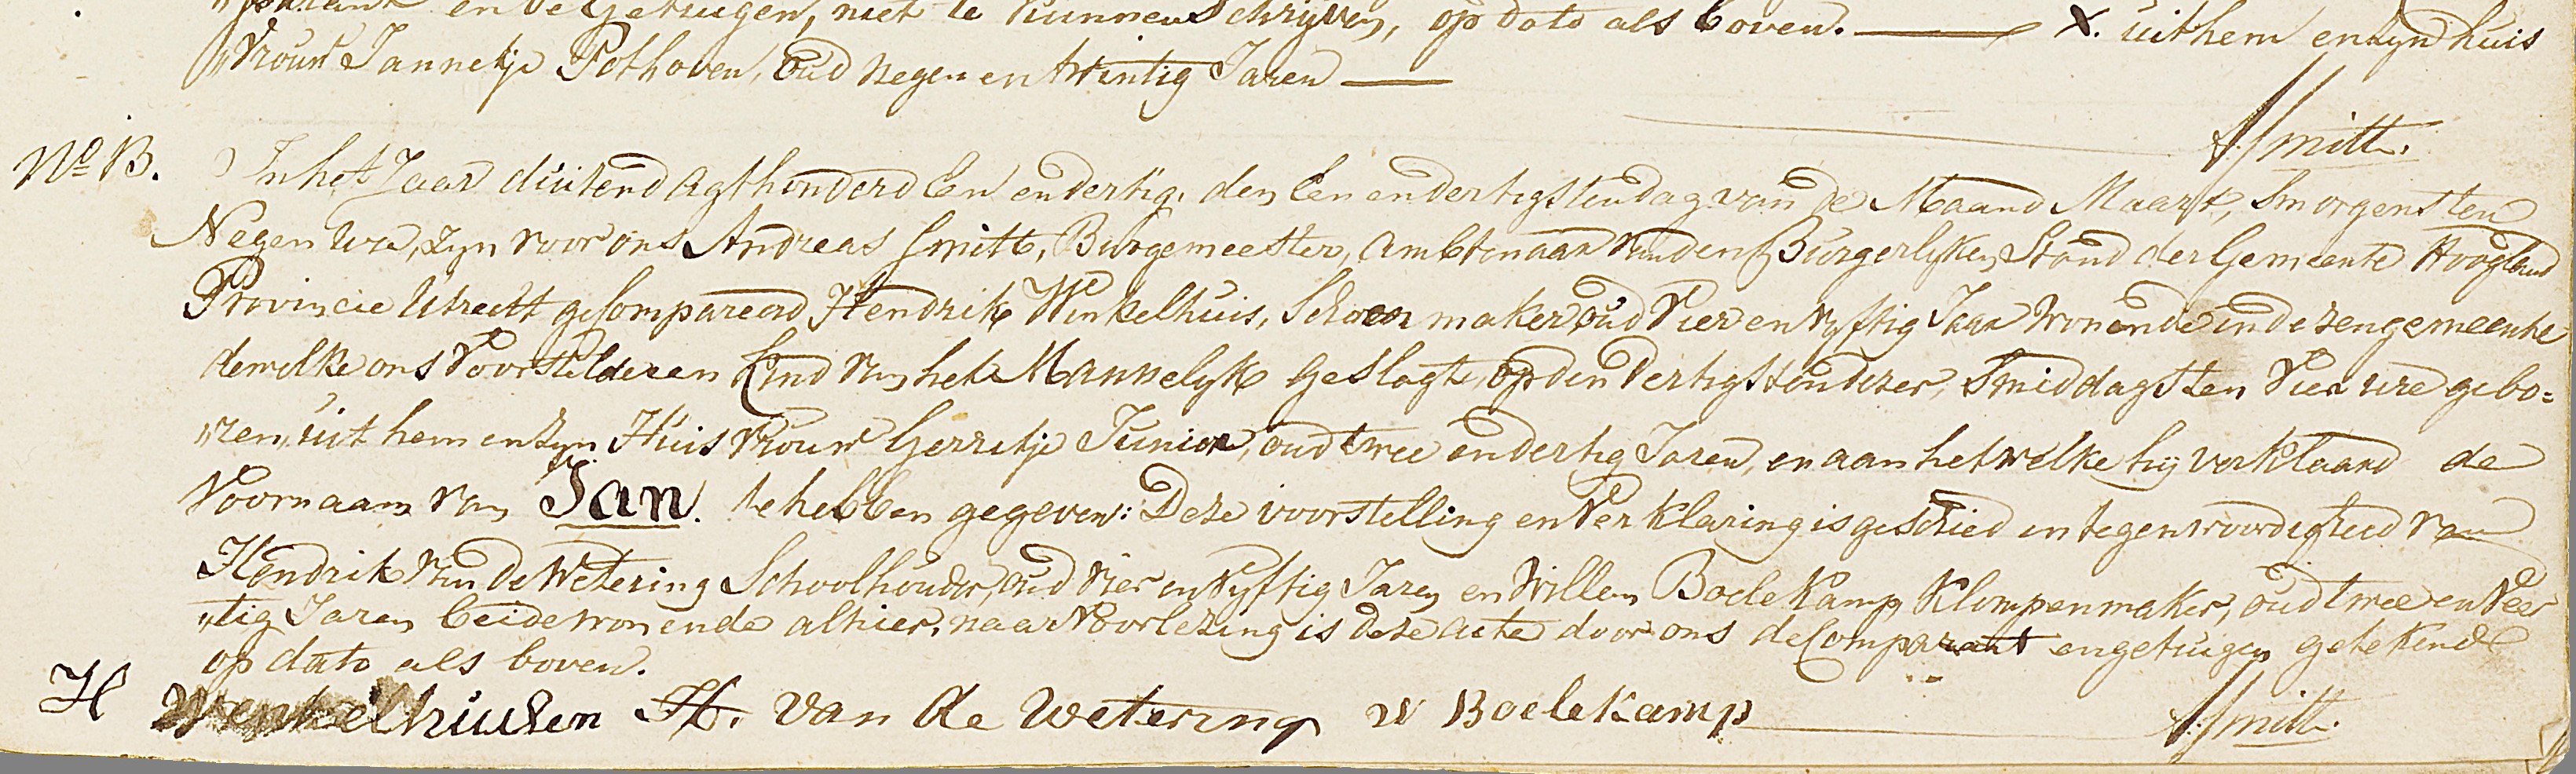 „parant en de Getuigen, niet te kunnen Schryven, op dato als boven. X. uit hem en zyn huis
„Vrouw Jannetje Pothoven, oud negen en twintig Jaren
A Smitt.
No 13. In het Jaar duitend agthonderd Een en dertig, den Een en dertigsten dag van de Maand Maart, Smorgens ten
Negen Ure, zyn voor ons Andreas Smitt, Burgemeester, ambtenaar van den Burgerlyken Stand der Gemeente Hoogland
Provincie Utrecht gecompareerd Hendrik Winkelhuis, Schoenmaker oud Vier en Vyftig Jaar wonende in dezen gemeente
dewelke ons Voorstelde een Kind van het Mannelyk geslagt, op den dertigsten dezer, Smiddags ten Vier ure gebo=
„ren, uit hem en zyn Huis Vrouw Gerritje Junior, oud twee en dertig Jaren, en aan het welke hij verklaard de
Voornaam van Jan. te hebben gegeven: Deze voorstelling en Verklaring is geschied in tegenwoordigheid van
Hendrik van de Wetering Schoolhouder, oud Vier en Vyftig Jaren en Willem Boelekamp Klompenmaker, oud twee en Veer
„tig Jaren beide wonende alhier, naar Voorlezing is deze acte door ons de Comparant en getuigen getekend
op dato als boven.
H Wenkelhuisen H. van de Wetering W Boelekamp
A Smitt.